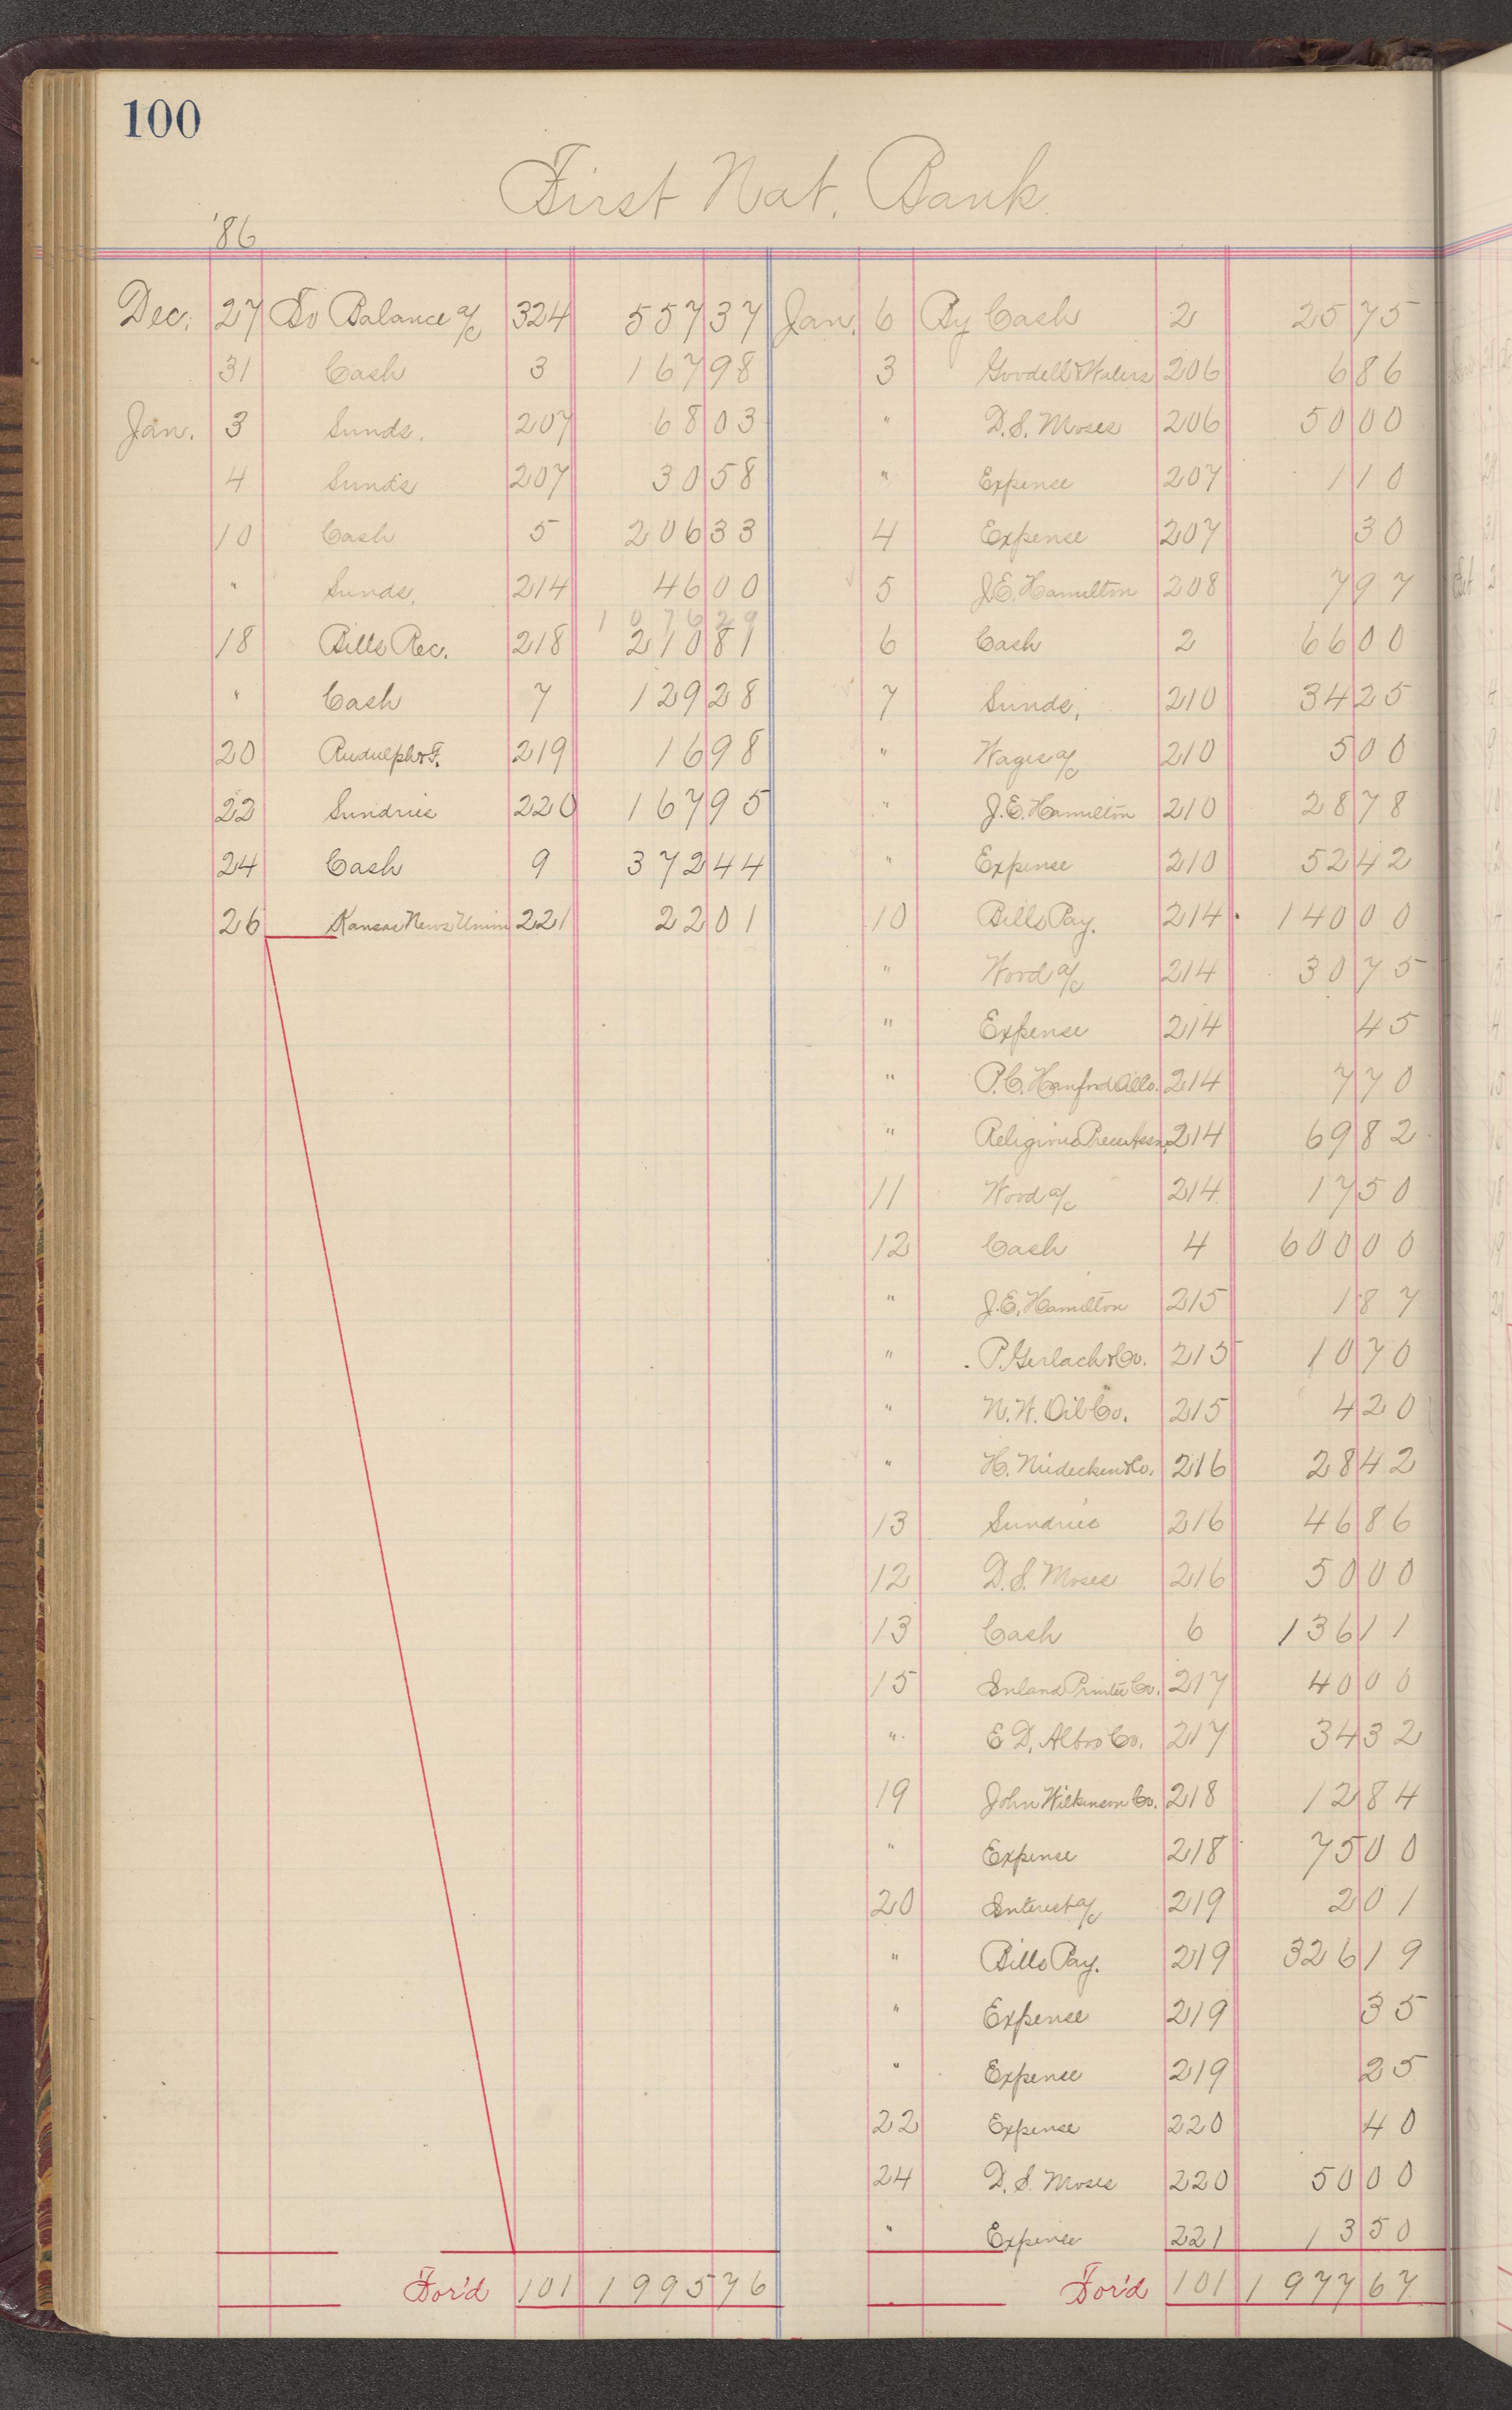 100
First Nat. Bank.
'86
Dec. 27 To Balance a/c 324 557 37
31 Cash 3 167 98
Jan. 3 Sunds. 207 68 03
4 Sunds 207 30 58
10 Cash 5 206 33
" Sunds. 214 46 00
1076 29
18 Bills Rec. 218 210 81
" Cash 7 129 28
20 Rudulph & F. 219 16 98
22 Sundries 220 167 95
24 Cash 9 372 44
26 Kansas News Union 221 22 01
For'd 101 1995 76
Jan. 6 By Cash 2 25 75
3 Goodell & Waters 206 6 86
" D. S. Moses 206 50 00
" Expense 207 1 10
4 Expense 207 30
5 J. E. Hamilton 208 7 97
6 Cash 2 66 00
7 Sunds. 210 34 25
" Wages a/c 210 5 00
" J. E. Hamilton 210 28 78
" Expense 210 52 42
10 Bills Pay. 214 140 00
" Wood a/c 214 30 75
" Expense 214 45
" P. C. Hanford Oil Co. 214 7 70
" Religious Press Assn. 214 69 82
11 Wood a/c 214 17 50
12 Cash 4 600 00
" J. E. Hamilton 215 1 87
" P. Gerlach & Co. 215 10 70
" N. W. Oil Co. 215 4 20
" H. Niedecken & Co. 216 28 42
13 Sundries 216 46 86
12 D. S. Moses 216 50 00
13 Cash 6 136 11
15 Inland Printer Co. 217 40 00
" E. D. Albro Co. 217 34 32
19 John Wilkinson Co. 218 12 84
" Expense 218 75 00
20 Interest a/c 219 2 01
" Bills Pay. 219 326 19
" Expense 219 35
" Expense 219 25
22 Expense 220 40
24 D. S. Moses 220 50 00
" Expense 221 13 50
For'd 101 1977 67